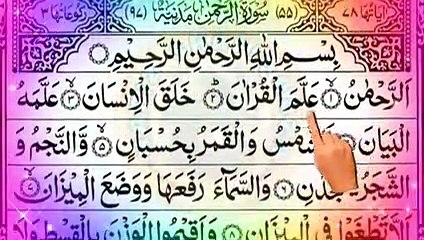 اٰیاتها ٧٨ (٥٥) سُوْرَةُ الرَّحْمٰنِ مَدَنِيَّةٌ (٩٧) رکوعاتها ٣
بِسْمِ اللّٰهِ الرَّحْمٰنِ الرَّحِيْمِ
اَلرَّحْمٰنُ ۝١ عَلَّمَ الْقُرْاٰنَ ۝٢ خَلَقَ الْاِنْسَانَ ۝٣ عَلَّمَهُ
الْبَيَانَ ۝٤ اَلشَّمْسُ وَالْقَمَرُ بِحُسْبَانٍ ۝٥ وَّالنَّجْمُ وَ
الشَّجَرُ ۝٦ وَالسَّمَآءَ رَفَعَهَا وَوَضَعَ الْمِيْزَانَ ۝٧
اَلَّا تَطْغَوْا فِى الْمِيْزَانِ ۝٨ وَاَقِيْمُوا الْوَزْنَ بِالْقِسْطِ وَلَا